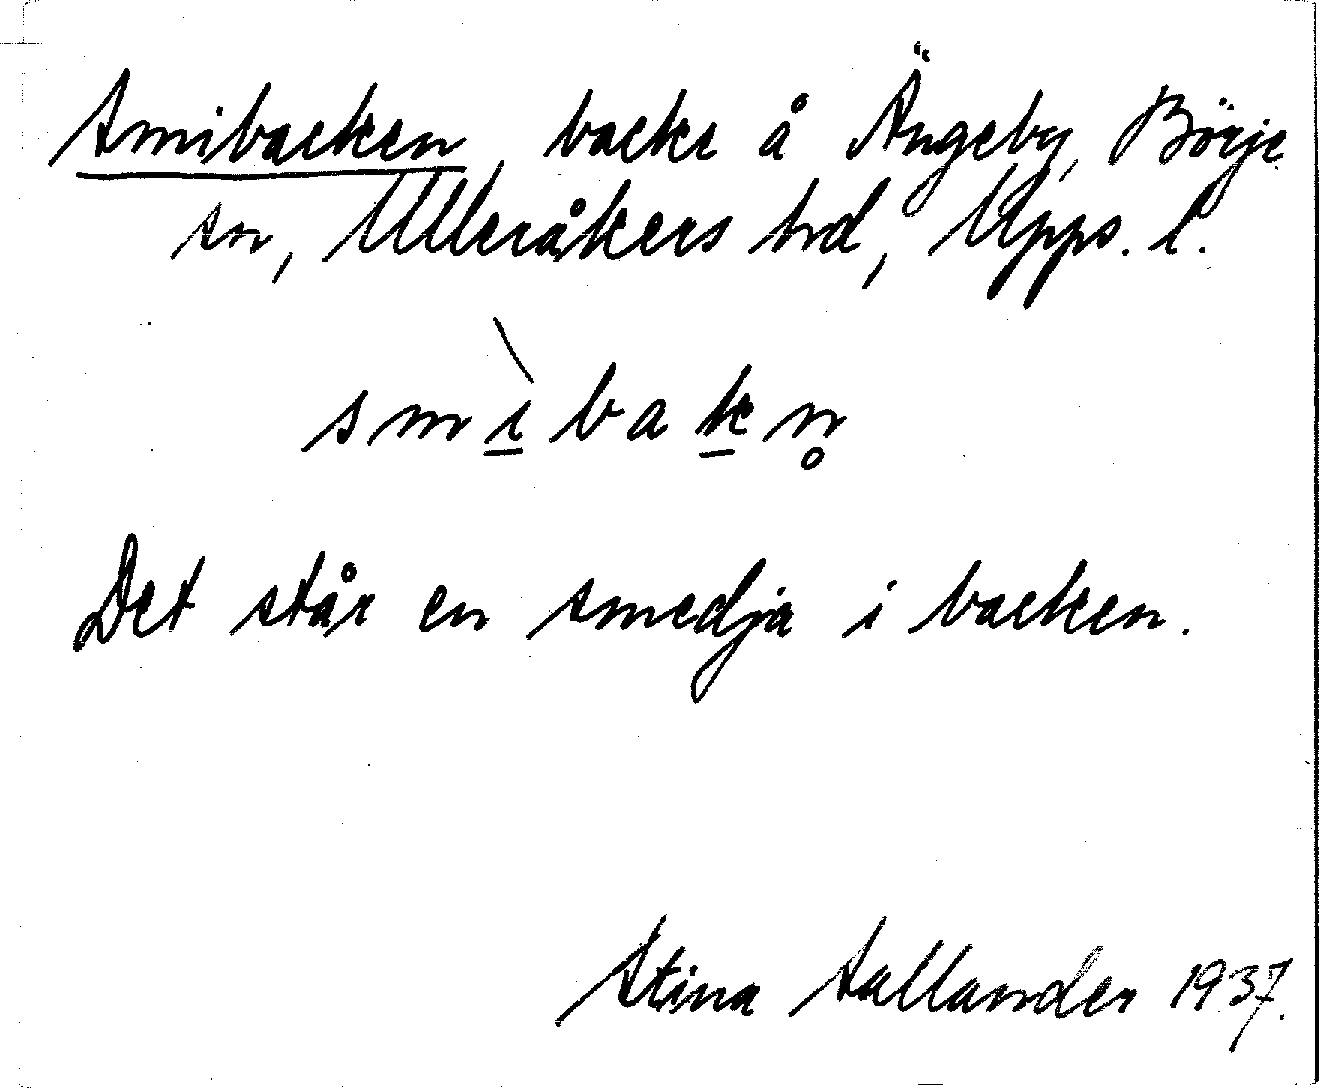 Smibacken, backe å Ängeby, Börje
sn, Ulleråkers hd, Upps. l.
smì̲bak̲n̥
Det står en smedja i backen.
Stina Sallander 1937.